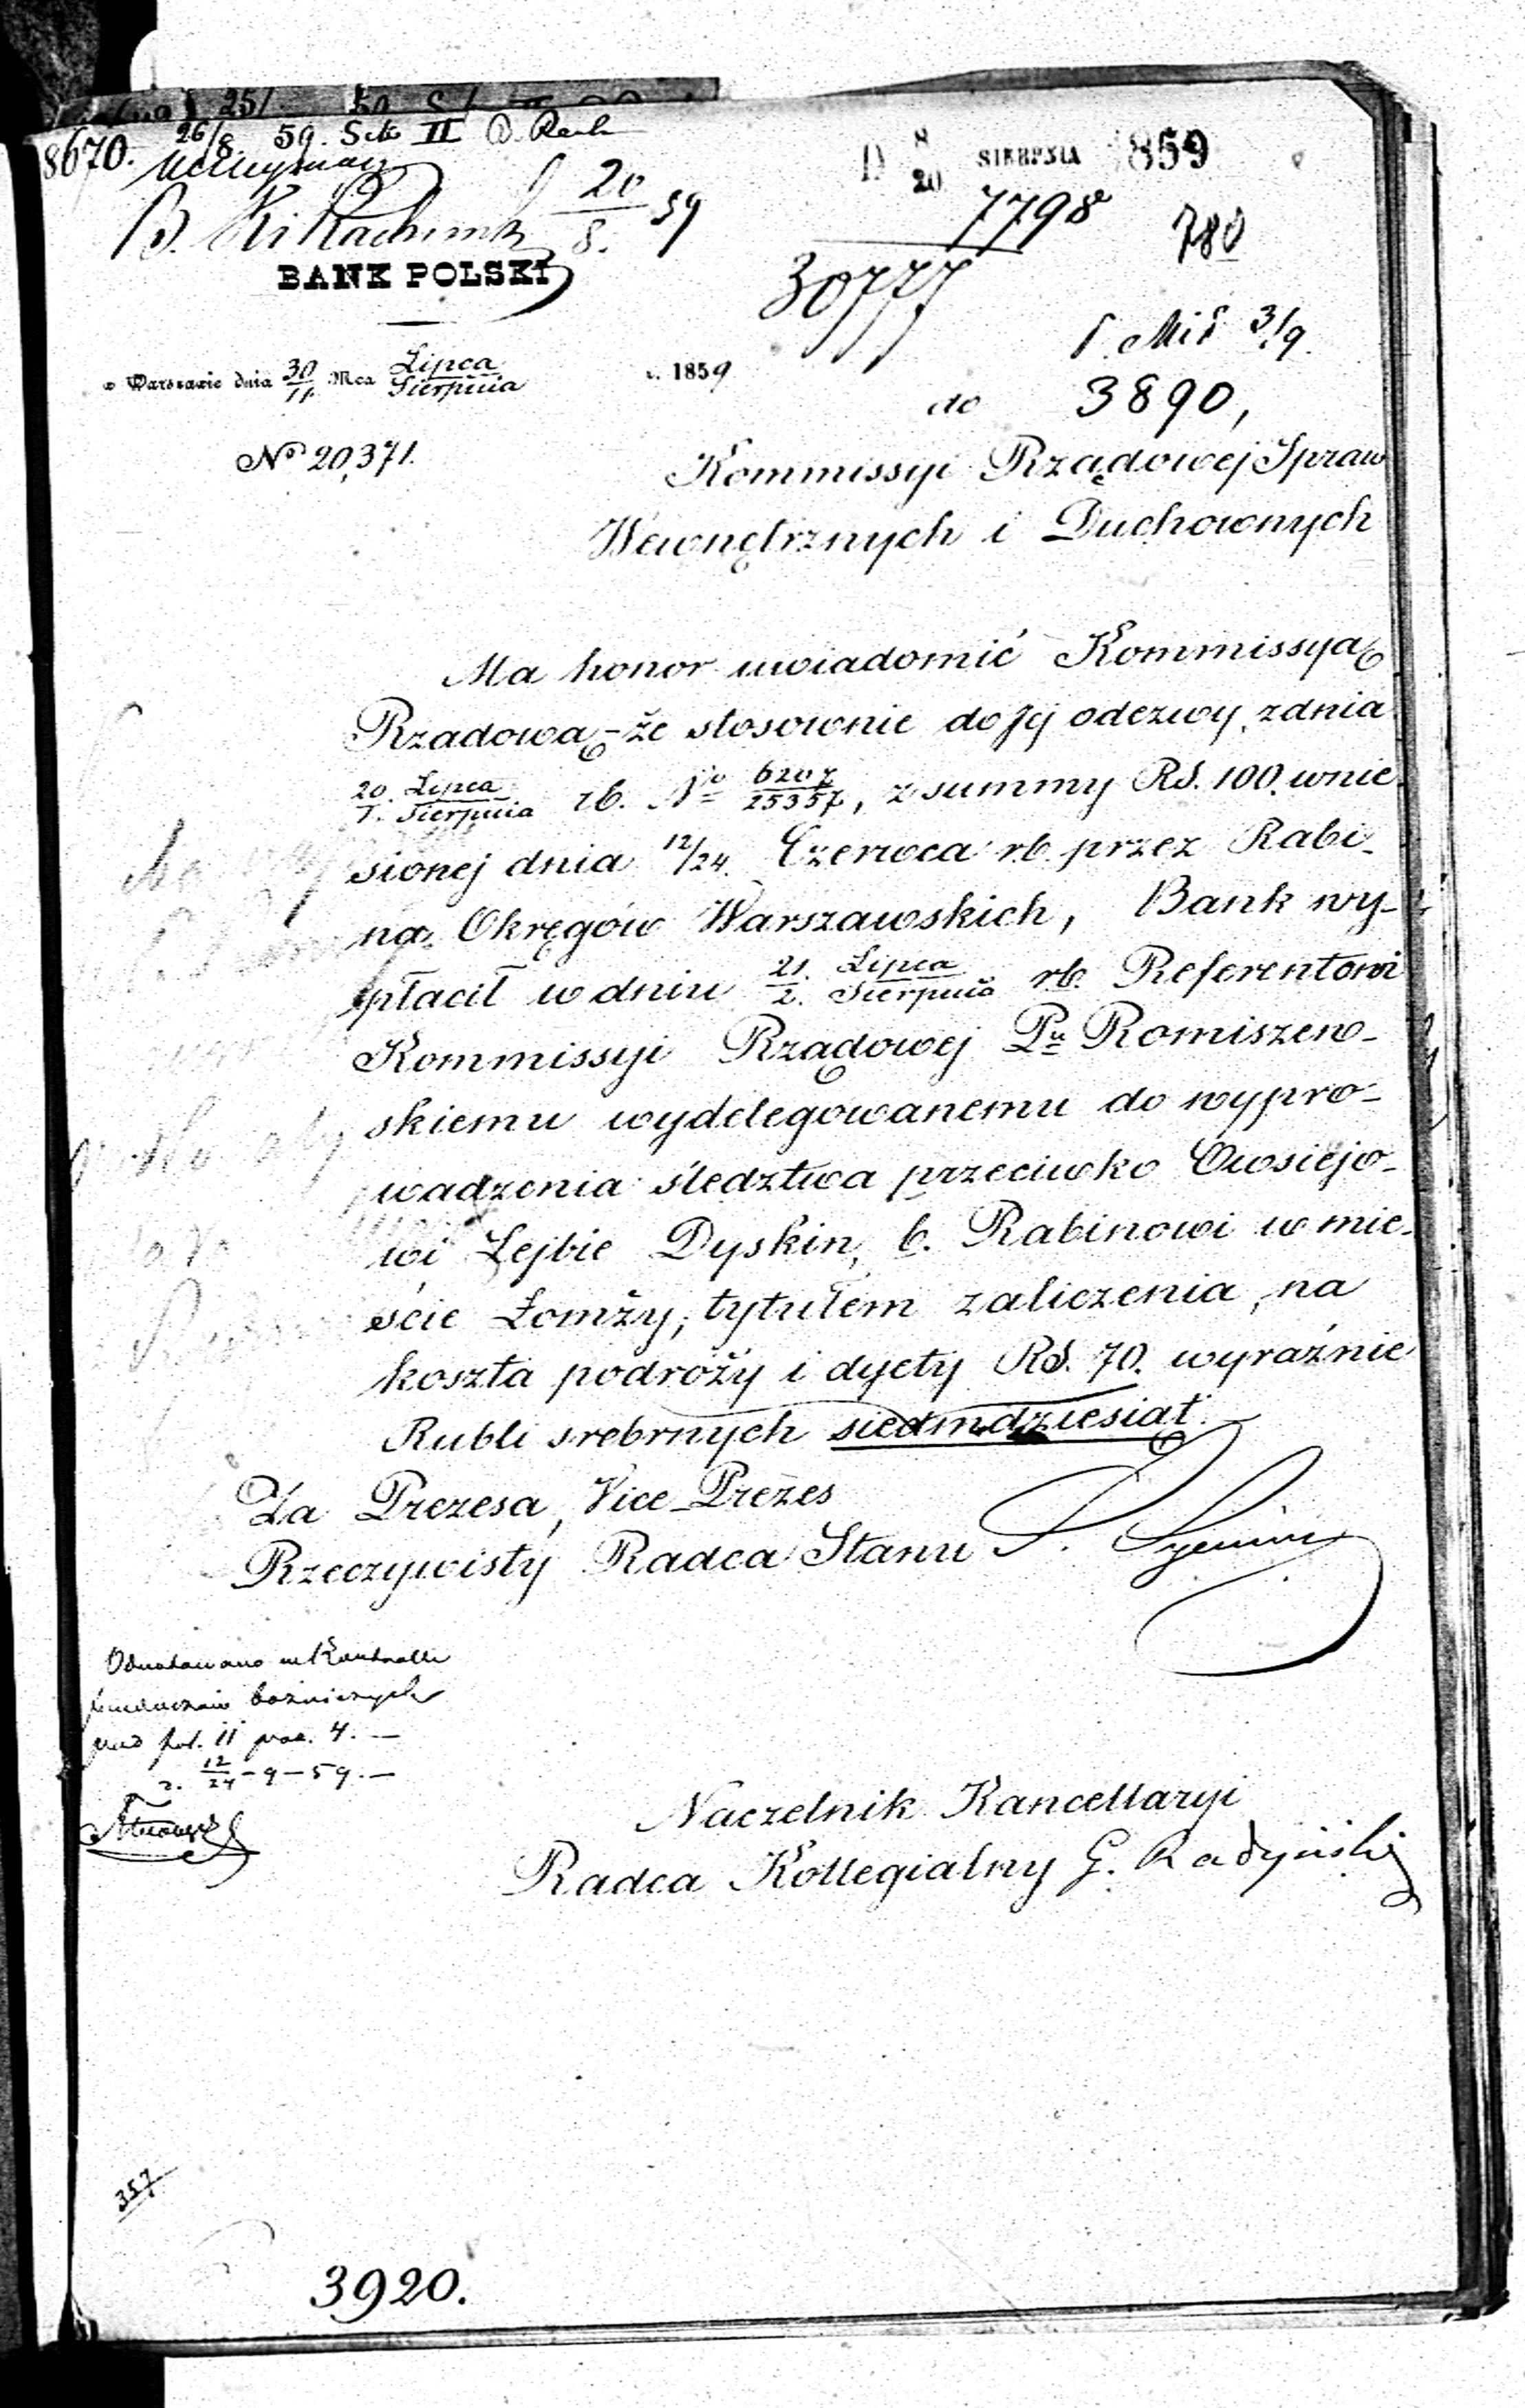 8670. 26/8 59. Sek II
20/8. 59
D 8/20 SIERPNIA 1859
7798
30777
780
3/9.
BANK POLSKI
w Warszawie dnia 30/11. Mca Lipca/Sierpnia r. 1859
do 3890,
No 20,371.
Kommissyi Rządowej Spraw
Wewnętrznych i Duchownych
Ma honor uwiadomić Kommissyą
Rządową – że stosownie do Jej odezwy, z dnia
20. Lipca/1. Sierpnia rb. No 6207/25357, z summy RS. 100. wnie-
sionej dnia 12/24. Czerwca rb. przez Rabi-
na Okręgów Warszawskich, Bank wy-
płacił w dniu 21. Lipca/2. Sierpnia rb. Referentowi
Kommissyi Rządowej Pu Romiszew-
skiemu wydelegowanemu do wypro-
wadzenia śledztwa przeciwko Owsiejo-
wi Lejbie Dyskin, b. Rabinowi w mie-
ście Łomży, tytułem zaliczenia, na
koszta podróży i dyety RS. 70. wyraźnie
Rubli srebrnych siedmdziesiąt.
Za Prezesa, Vice-Prezes
Rzeczywisty Radca Stanu
Odnotowano w Kontrolli
funduszów bożniczych
pod fol. 11 poz. 4. —
d. 12/24 – 9 – 59. —
Naczelnik Kancellaryi
Radca Kollegialny G. Radyński
357
3920.